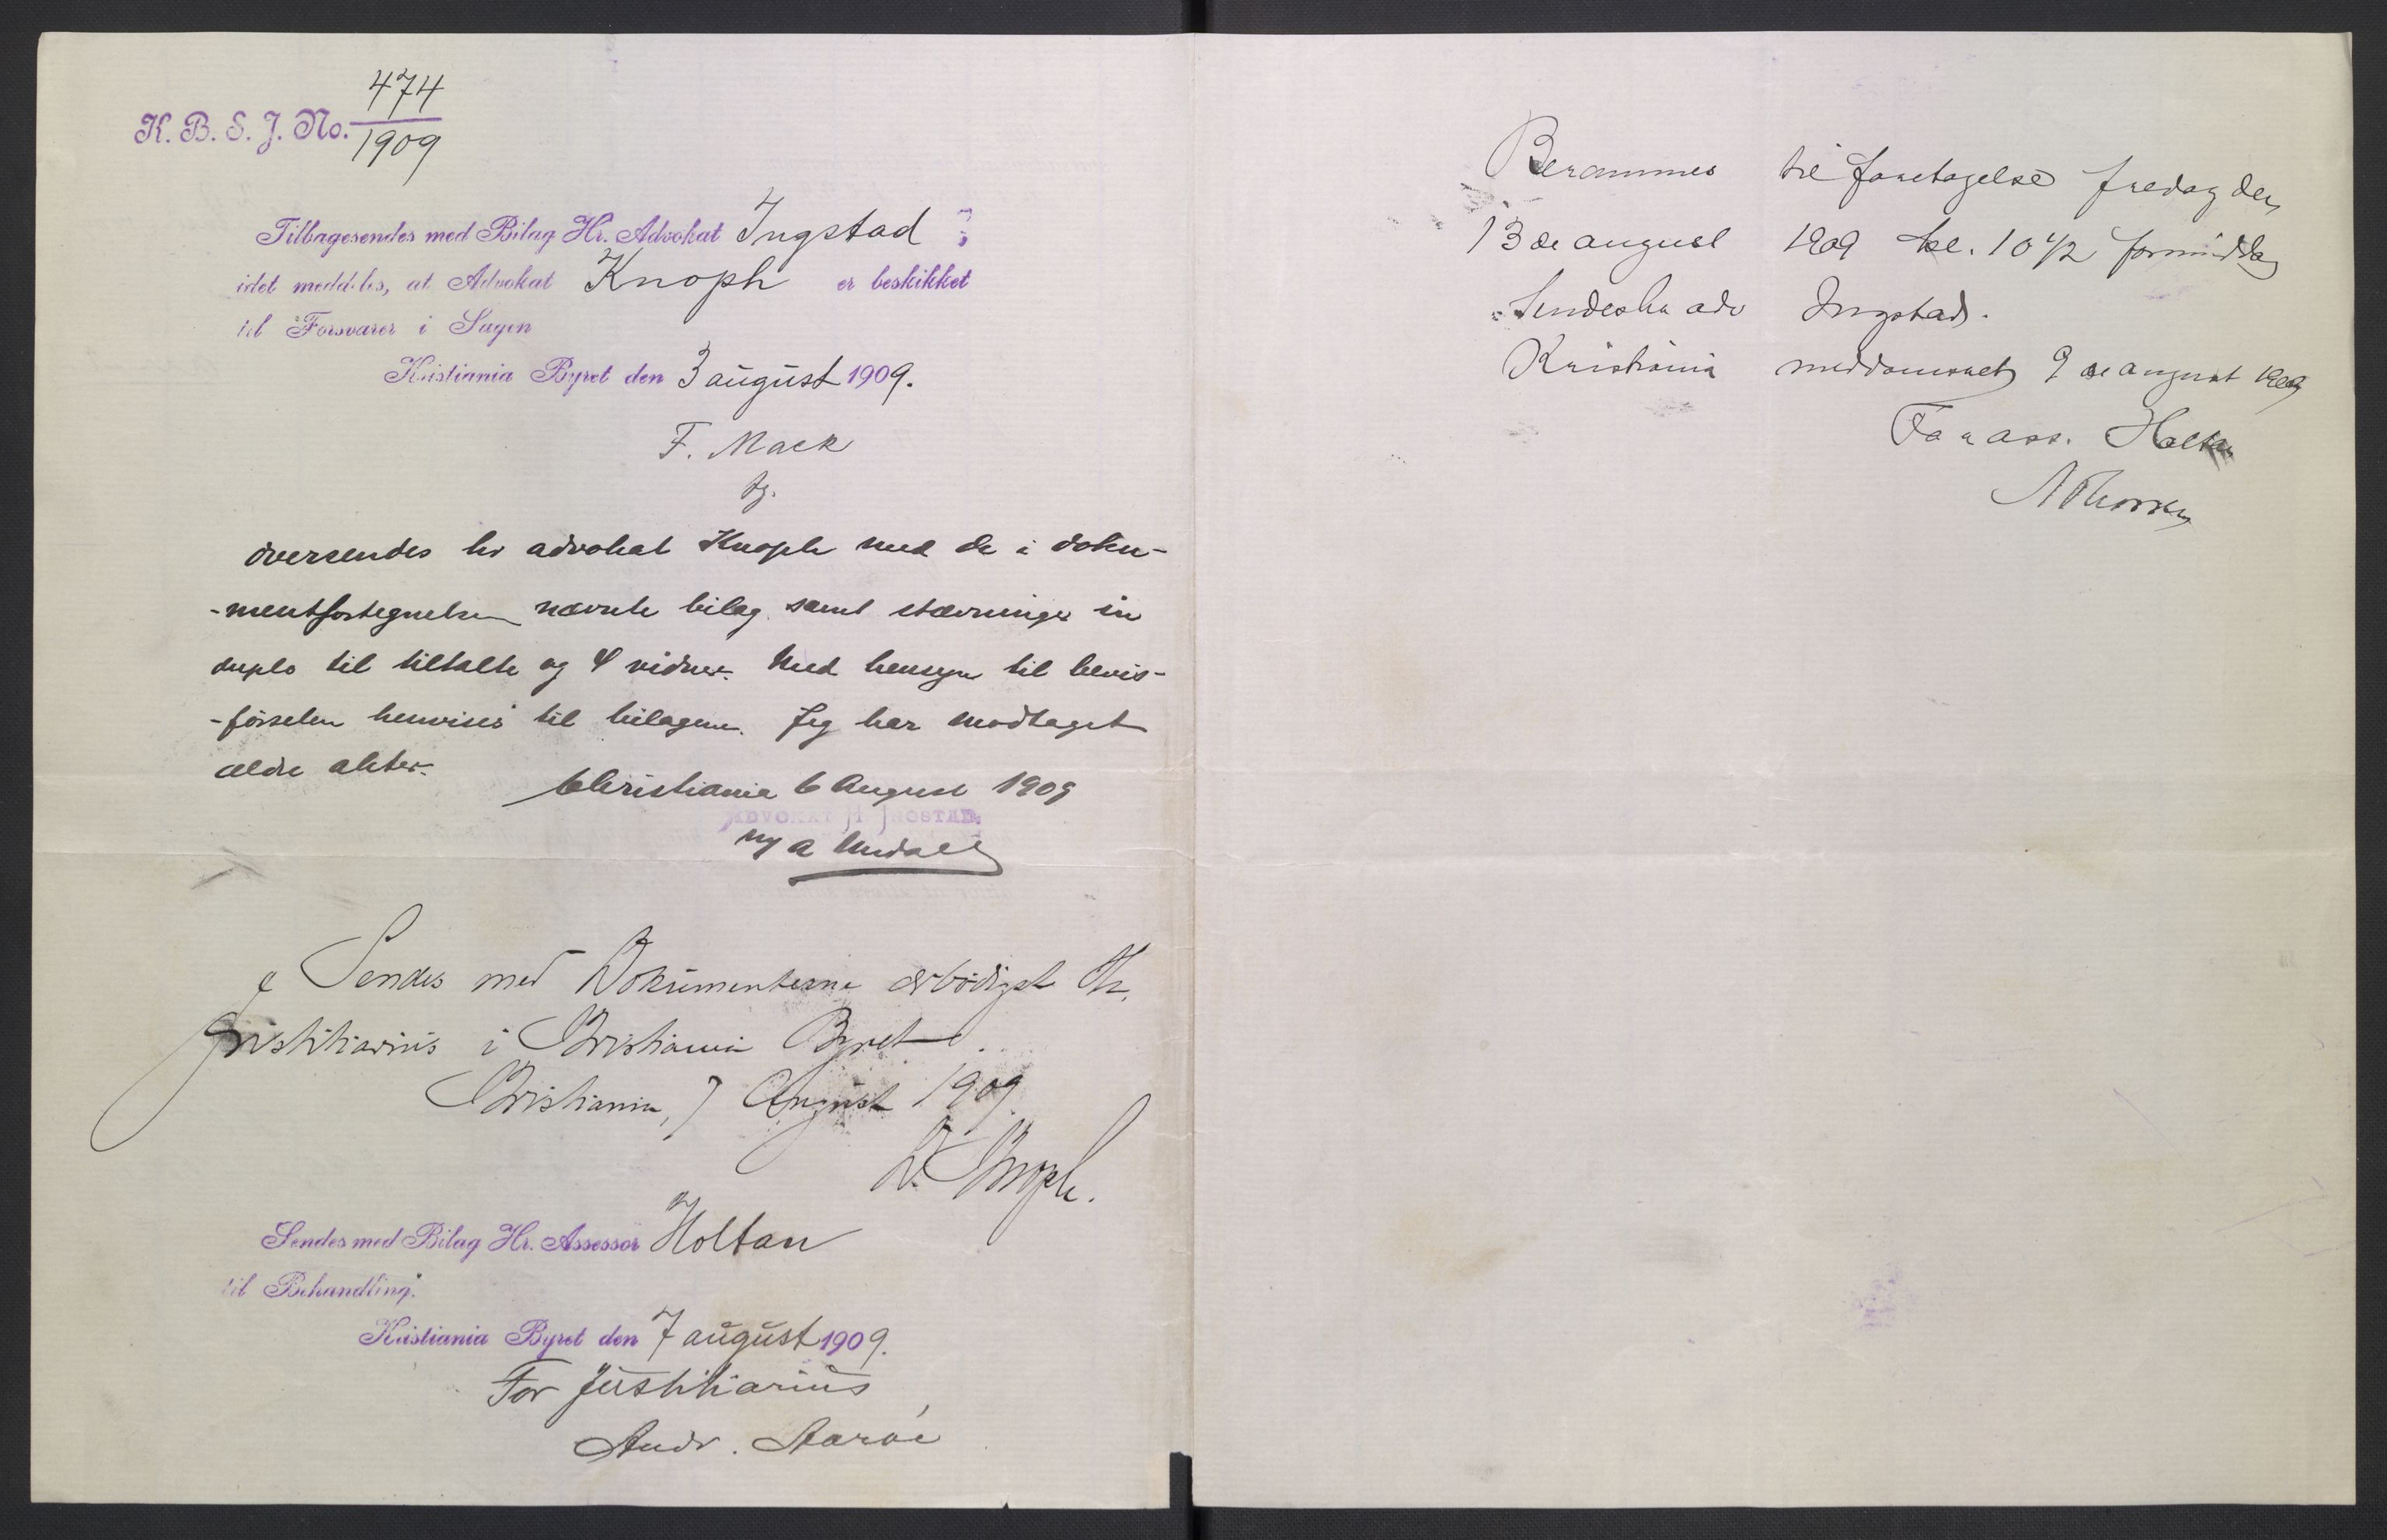 K. B. S. J. No. 474
1909
Tilbagesendes med Bilag Hr. Advokat Ingstad,
idet meddeles, at Advokat Knoph er beskikket
til Forsvarer i Sagen
Kristiania Byret den 3 august 1909.
F. Mack
fg.
Oversendes hr advokat Knoph med de i doku-
-mentfortegnelsen nævnte bilag samt stævninger in
duplo til tiltalte og 4 vidner. Med hensyn til bevis-
-førselen henvises til bilagene. Jeg har modtaget
ældre akter.
Christiania 6 August 1909
ADVOKAT INGSTAD
Sendes med Dokumenterne ærbødigst Hr.
Justitiarius i Kristiania Byret.
Kristiania, 7 August 1909
Knoph.
Sendes med Bilag Hr. Assessor Holtan
til Behandling.
Kristiania Byret den 7 august 1909.
For Justitiarius,
Andr. Aarøe
Berammes til foretagelse fredag den
13de august 1909 kl. 10 1/2 formiddag
Sendes hr adv Ingstad.
Kristiania meddomsret 9de august 1909
For ass. Holtan